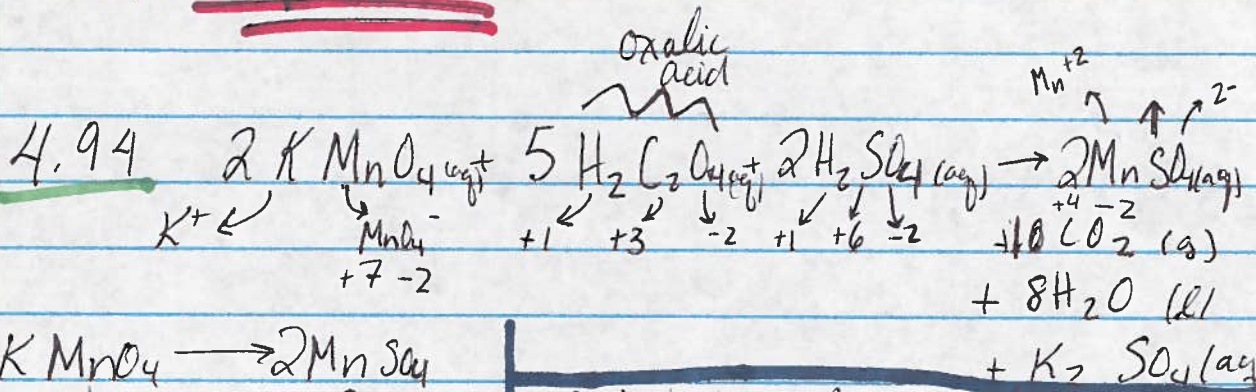 oxalic
acid
Mn+2 2-
4.94 2 K MnO4 (aq) + 5 H2C2O4(aq) + 2H2SO4 (aq) → 2MnSO4(aq)
K+ MnO4- +1 +3 -2 +1 +6 -2 +4 -2
+7 -2 +10 CO2 (g)
+ 8H2O (l)
KMnO4 → 2MnSO4 + K2 SO4 (aq